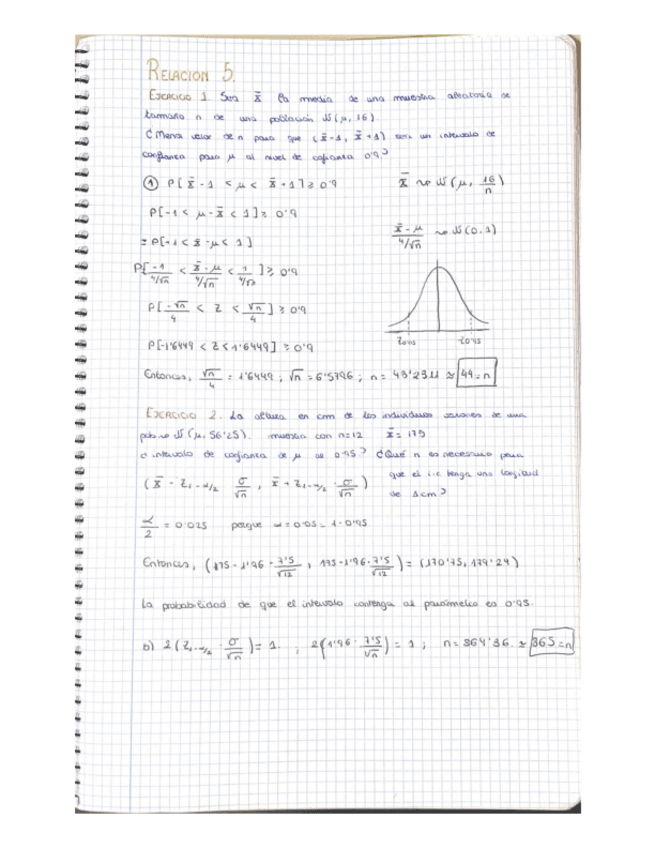 RELACION 5.
EJERCICIO 1. Sea x̄ la media de una muestra aleatoria de
tamaño n de una población N(μ, 16)
¿Menor valor de n para que (x̄-1, x̄+1) sea un intervalo de
confianza para μ al nivel de cofianza 0'9?
① P[x̄-1 < μ < x̄+1] ≥ 0'9
x̄ ~> N(μ, 16/n)
P[-1 < μ-x̄ < 1] ≥ 0'9
= P[-1 < x̄-μ < 1]
(x̄-μ)/(4/√n) ~> N(0,1)
P[-1/(4/√n) < (x̄-μ)/(4/√n) < 1/(4/√n)] ≥ 0'9
P[-√n/4 < Z < √n/4] ≥ 0'9
Z0'95 Z0'95
P[-1'6449 < Z < 1'6449] ≥ 0'9
Entonces, √n/4 = 1'6449 ; √n = 6'5796 ; n = 43'2911 ≈ 44 = n
EJERCICIO 2. La altura en cm de los individuos varones de una
pob N(μ, 56'25). muestra con n=12 x̄ = 175
¿ intervalo de confianza de μ al 0'95? ¿Qué n es necesario para
que el i.c tenga una longitud
de 1cm?
(x̄ - Z1-α/2 σ/√n , x̄ + Z1-α/2 · σ/√n)
α/2 = 0.025 porque α = 0'05 = 1 - 0'95
Entonces, (175 - 1'96 · 7'5/√12 , 175 - 1'96 · 7'5/√12) = (170'75, 179'24)
La probabilidad de que el intervalo contenga al parámetro es 0'95.
b) 2(Z1-α/2 · σ/√n) = 1. ; 2(1'96 · 7'5/√n) = 1 ; n = 864'36. ≈ 865 = n